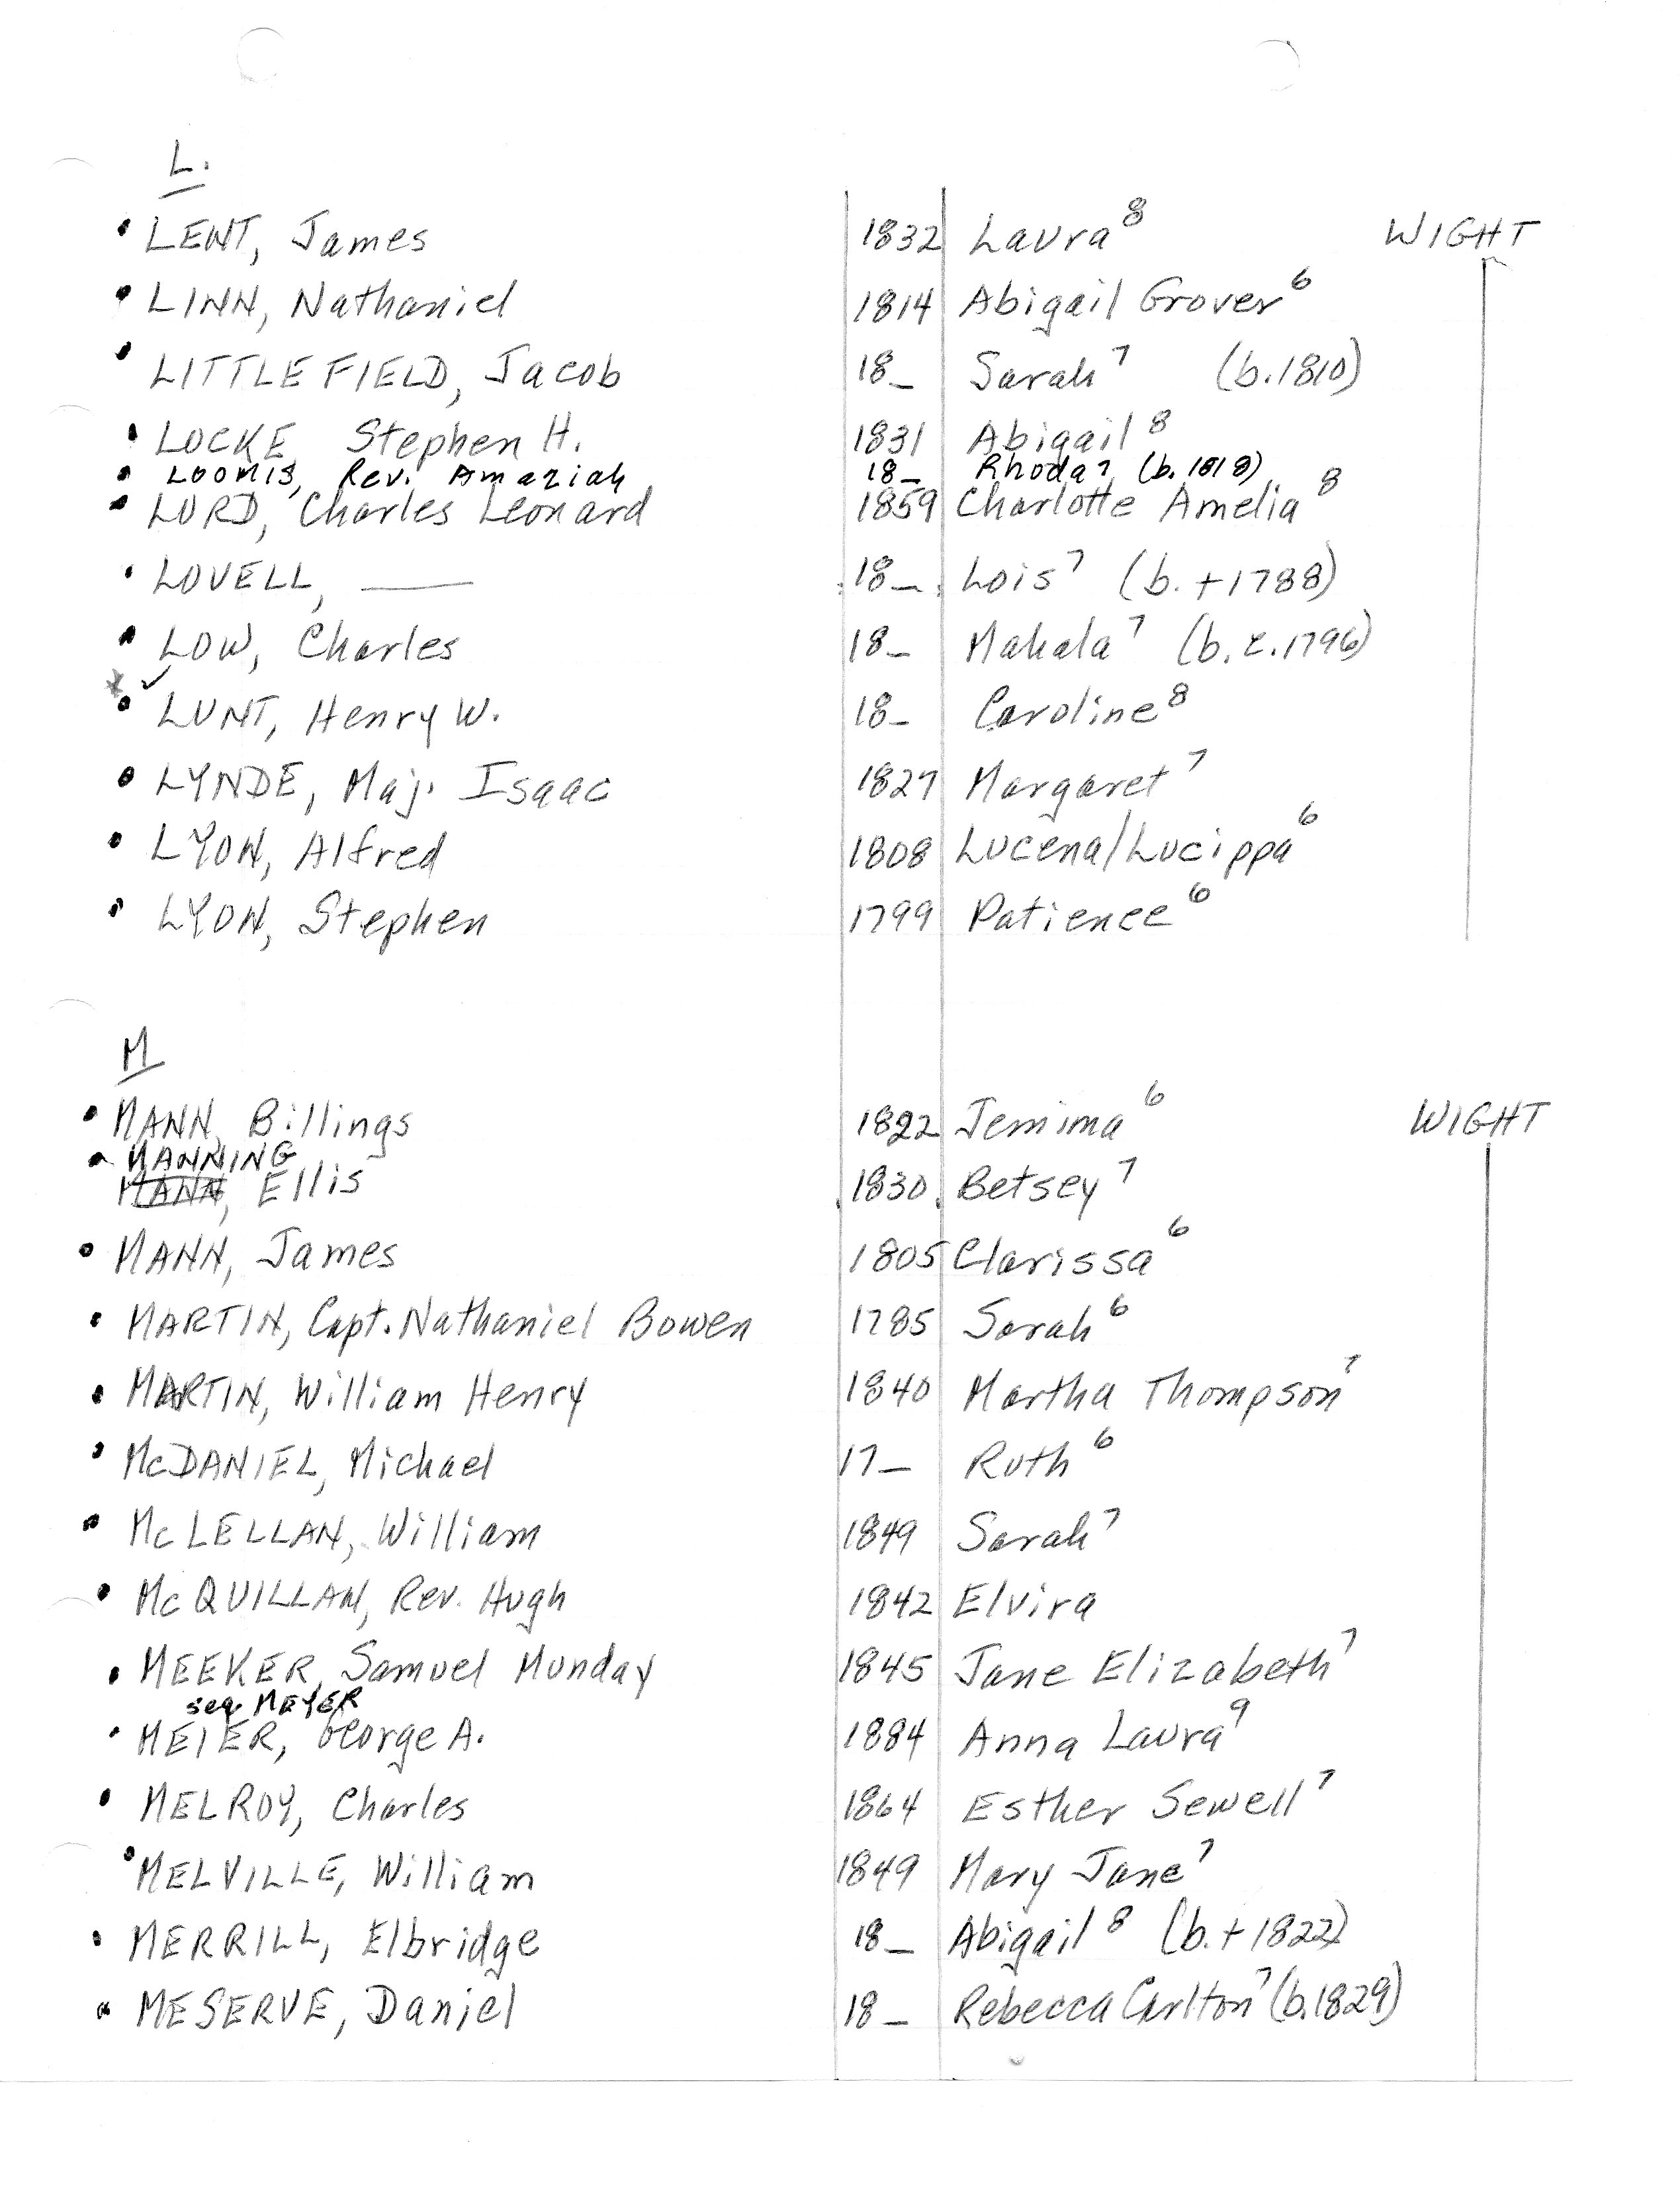 L.
• LENT, James 1832 Laura⁸ WIGHT
• LINN, Nathaniel 1814 Abigail Grover⁶
• LITTLEFIELD, Jacob 18_ Sarah⁷ (b.1810)
• LOCKE, Stephen H. 1831 Abigail⁸
• LOOMIS, Rev. Amaziah 18_ Rhoda⁷ (b.1818)
• LORD, Charles Leonard 1859 Charlotte Amelia⁸
• LOVELL, — 18_ Lois⁷ (b.+1788)
• LOW, Charles 18_ Mahala⁷ (b.c.1796)
• LUNT, Henry W. 18_ Caroline⁸
• LYNDE, Maj. Isaac 1827 Margaret⁷
• LYON, Alfred 1808 Lucena/Lucippa⁶
• LYON, Stephen 1799 Patience⁶
M
• MANN, Billings 1822 Jemima⁶ WIGHT
• MANNING
MANN, Ellis 1830 Betsey⁷
• MANN, James 1805 Clarissa⁶
• MARTIN, Capt. Nathaniel Bowen 1785 Sarah⁶
• MARTIN, William Henry 1840 Martha Thompson⁷
• McDANIEL, Michael 17_ Ruth⁶
• McLELLAN, William 1849 Sarah⁷
• McQUILLAN, Rev. Hugh 1842 Elvira
• MEEKER, Samuel Munday 1845 Jane Elizabeth⁷
see MEYER
• MEIER, George A. 1884 Anna Laura⁹
• MELROY, Charles 1864 Esther Sewell⁷
• MELVILLE, William 1849 Mary Jane⁷
• MERRILL, Elbridge 18_ Abigail⁸ (b.+1822)
• MESERVE, Daniel 18_ Rebecca Carlton⁷ (b.1829)